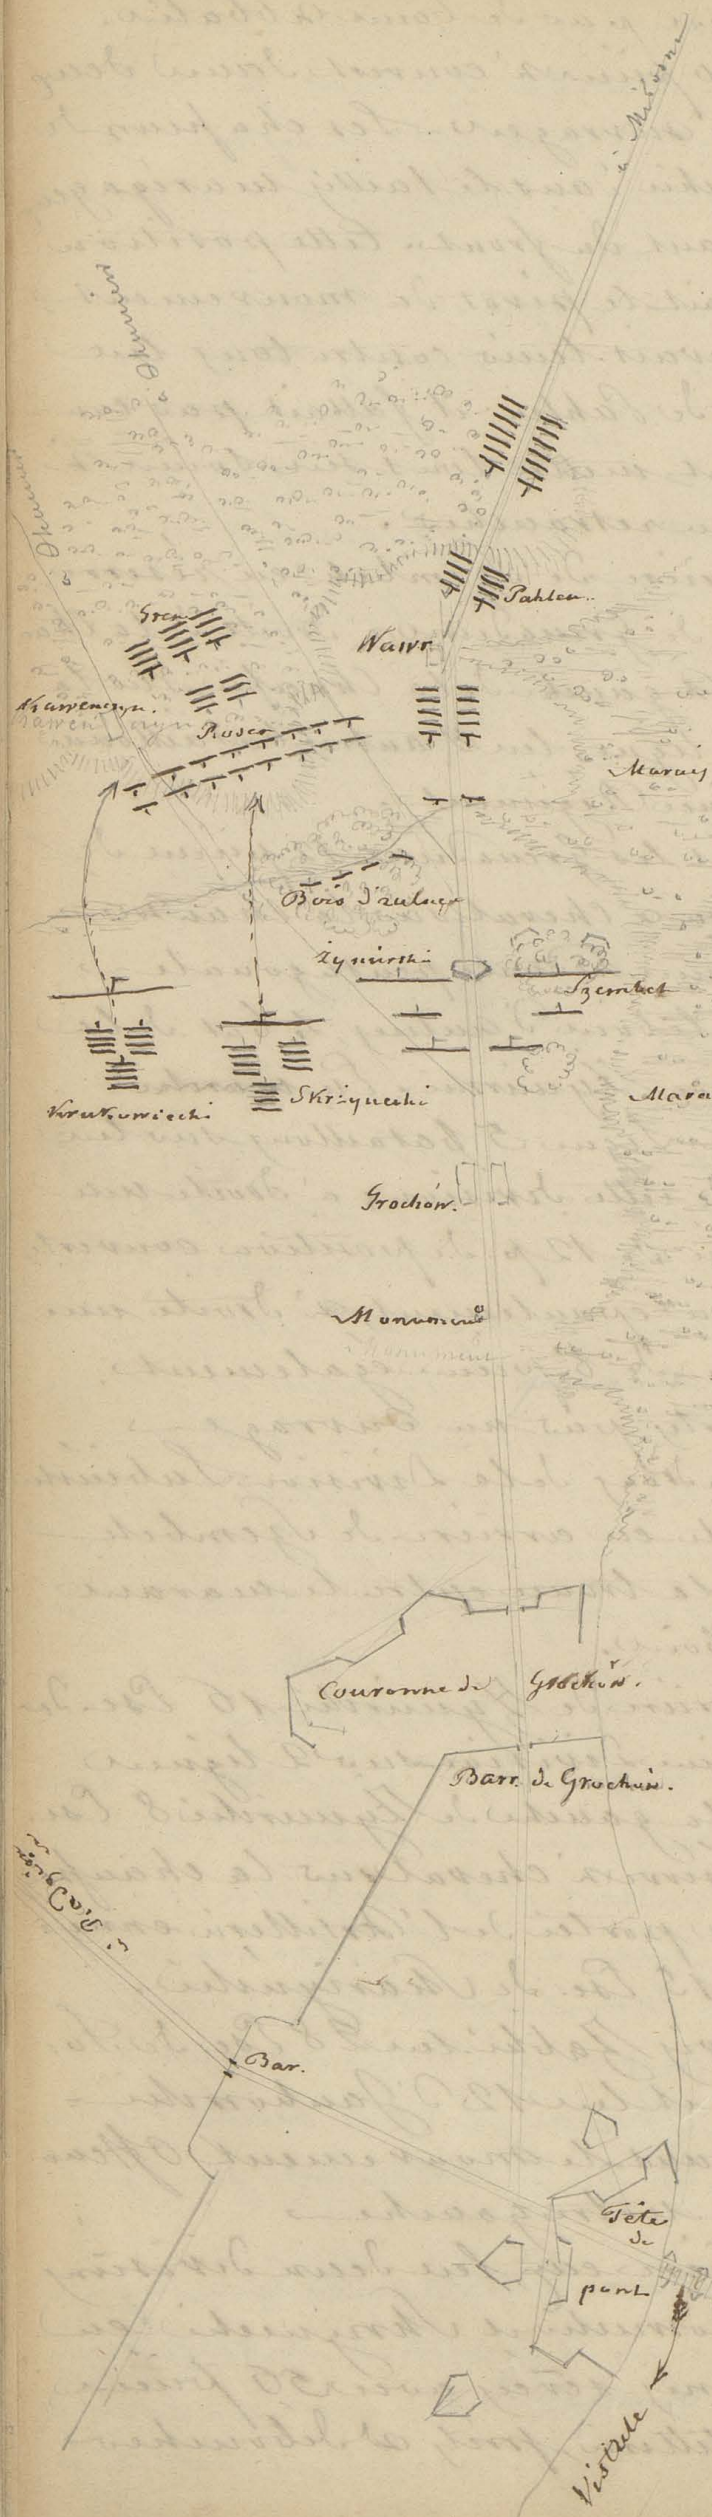 à Milosna
à Okuniew
à Okuniew
Gren.
Pahlen..
Wawr
Kawenczyn.
Kawenczyn
Rosen
Marais
Bois d'aulnes
Żymirski
Szembek
Krukowiecki
Skrzynecki
Mara
Grochów.
Monument
Monument
Couronne de Grochów.
Barr. de Grochów.
Bar.
Tête
de
pont
Vistule